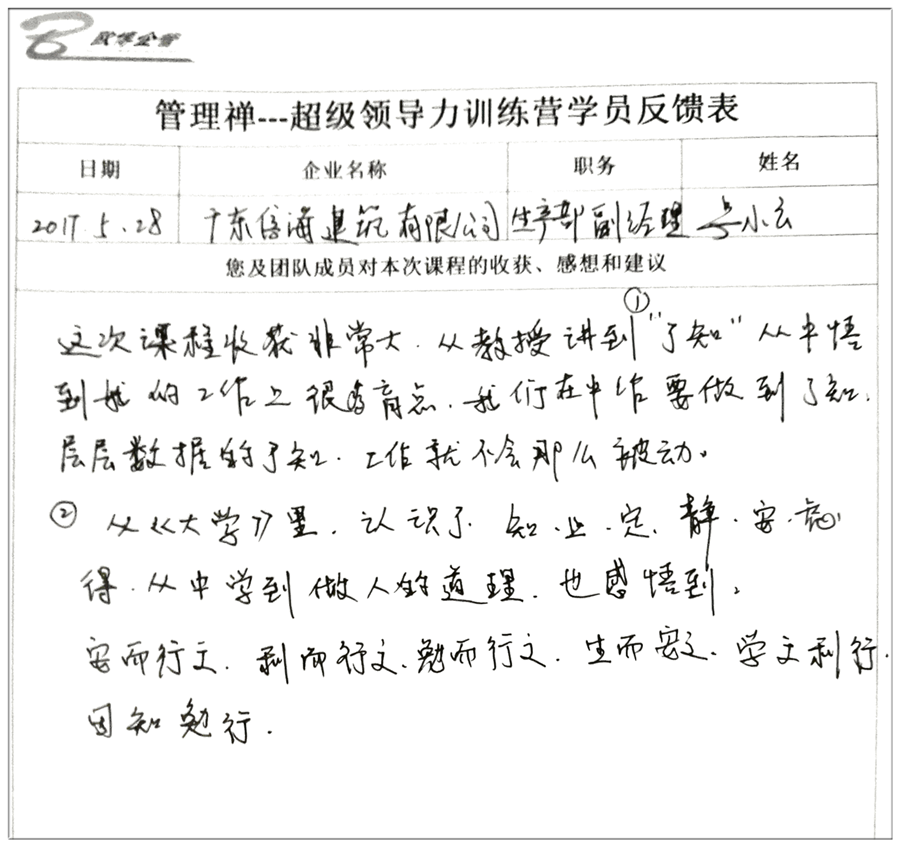 欧博企管
管理禅---超级领导力训练营学员反馈表
日期 企业名称 职务 姓名
2017 5.28 广东信海建筑有限公司 生产部副经理 小云
您及团队成员对本次课程的收获、感想和建议
这次课程收获非常大.从教授讲到①"了知"从中悟
到我的工作上很多盲点.我们在中作要做到了知.
层层数据的了知.工作就不会那么被动。
② 从《大学》里.认识了知.止.定.静.安.虑
得.从中学到做人的道理.也感悟到,
安而行之.利而行之.勉而行之.生而安之.学之利行.
因知勉行.